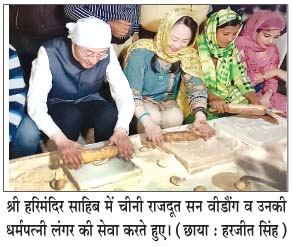 श्री हरिमंदिर साहिब में चीनी राजदूत सन वीडौंग व उनकी
धर्मपत्नी लंगर की सेवा करते हुए। ( छाया : हरजीत सिंह )